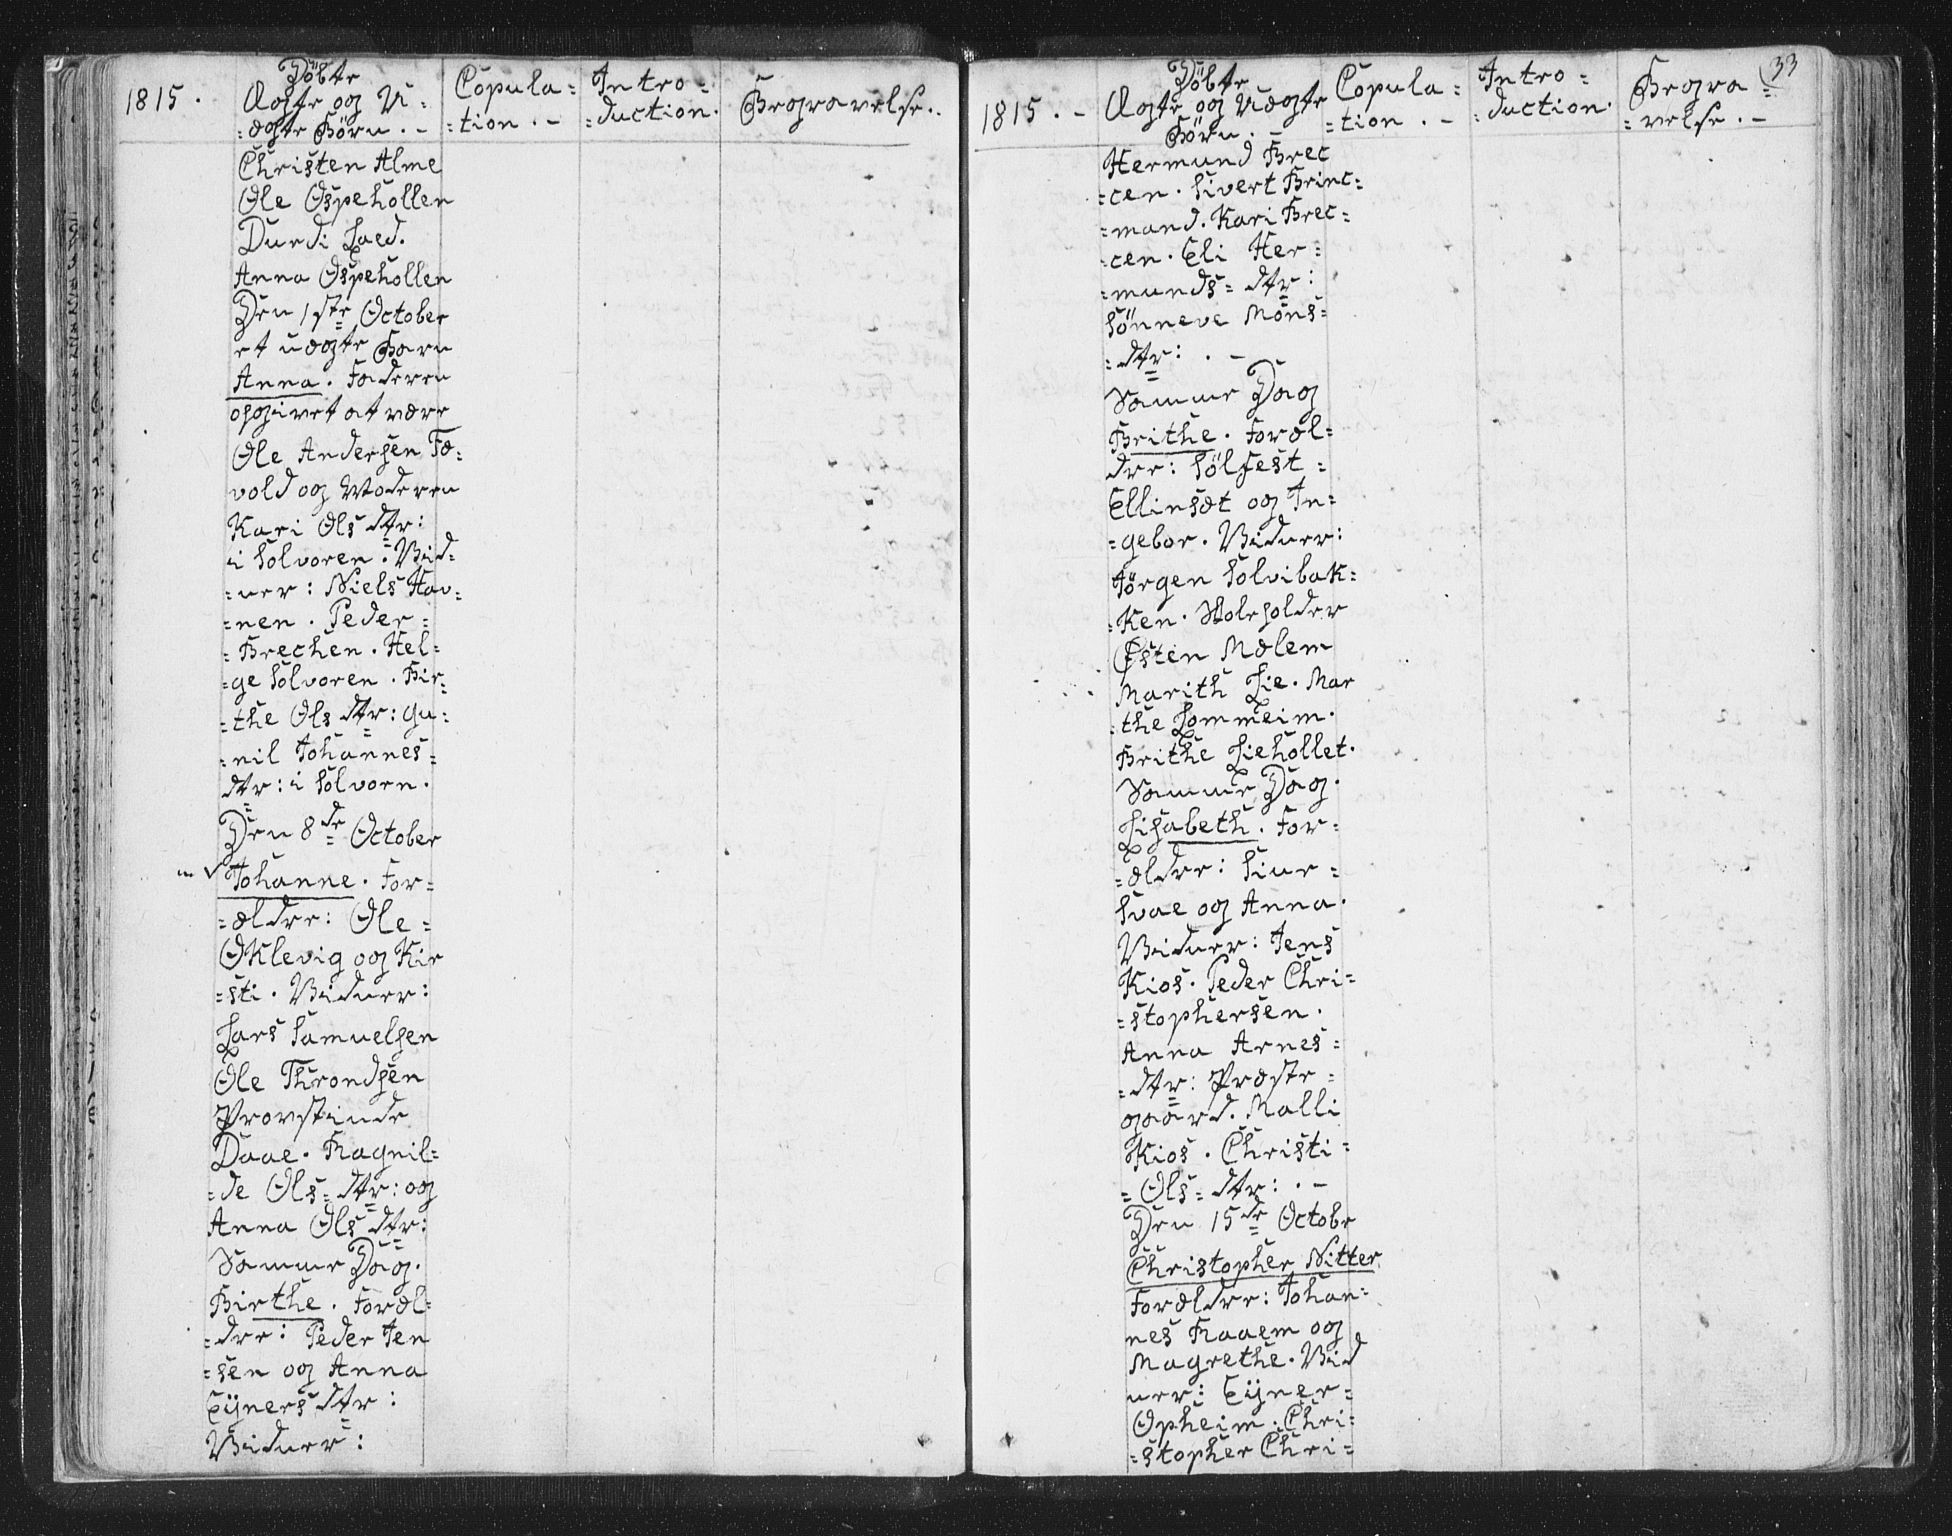 1815.
Döbte
Ægte og U-
=ægte Börn. -
Copula=
=tion. -
Intro=
=duction.
Begravelse..
Christen Alme
Ole Ospehollen
Durdi Læd.
Anna Ospehollen
Den 1ste October
et uægte Barn
Anna. Faderen
opgivet at være
Ole Andersen Fæ=
vold og Moderen
Kari Ols dtr:
i Solvoren. Vid=
=ner: Niels Hav=
=nen. Peder=
=Brechen. Hel=
=ge Solvoren. Bir=
=the Ols dtr: Gu=
=nil Johannes=
dtr: i Solvorn.
Den 8de October
Johanne. For=
=ældre: Ole=
Oklevig og Kir
=sti. Vidner:
Lars Samuelsen
Ole Throndsen
Provstinde
Daae. Ragnil=
=de Ols= dtr: og
Anna Ols dtr:
Samme Dag.
Birthe. Foræl=
=dre: Peder Jen
=sen og Anna
Eÿners dtr:
Vidner:
33
1815. -
Döbte
Ægte og Uægte
Börn. -
Copula=
=tion. -
Intro=
=duction.
Begra=
=velse. -
Hermund Brec
=cen. Sivert Brinc=
=mand. Kari Brec=
=cen. Eli Her=
=munds= dtr:
Sönneve Möns=
=dtr: . -
Samme Dag
Brithe. Foræl=
dre: Sölfest=
Ellinsæt og In=
=gebor. Vidner:
Jörgen Solvibak=
=ken. Skoleholder
Østen Mælem
Marith Lie. Mar
=the Lommeim.
Brithe Liehollet.
Samme Dag.
Lisabeth. For=
=ældre: Siur=
Svae og Anna.
Vidner: Jens
Kios. Peder Chri=
=stophersen.
Anna Arnes=
=dtr: Præste=
gaard. Malli
Kios. Christi=
=Ols= dtr: . -
Den 15de Octobr
Christopher Nitter
Forældre: Johan=
nes Raaem og
Magrethe. Vid
ner: Eÿner=
Opheim. Chri=
=stopher Chri=